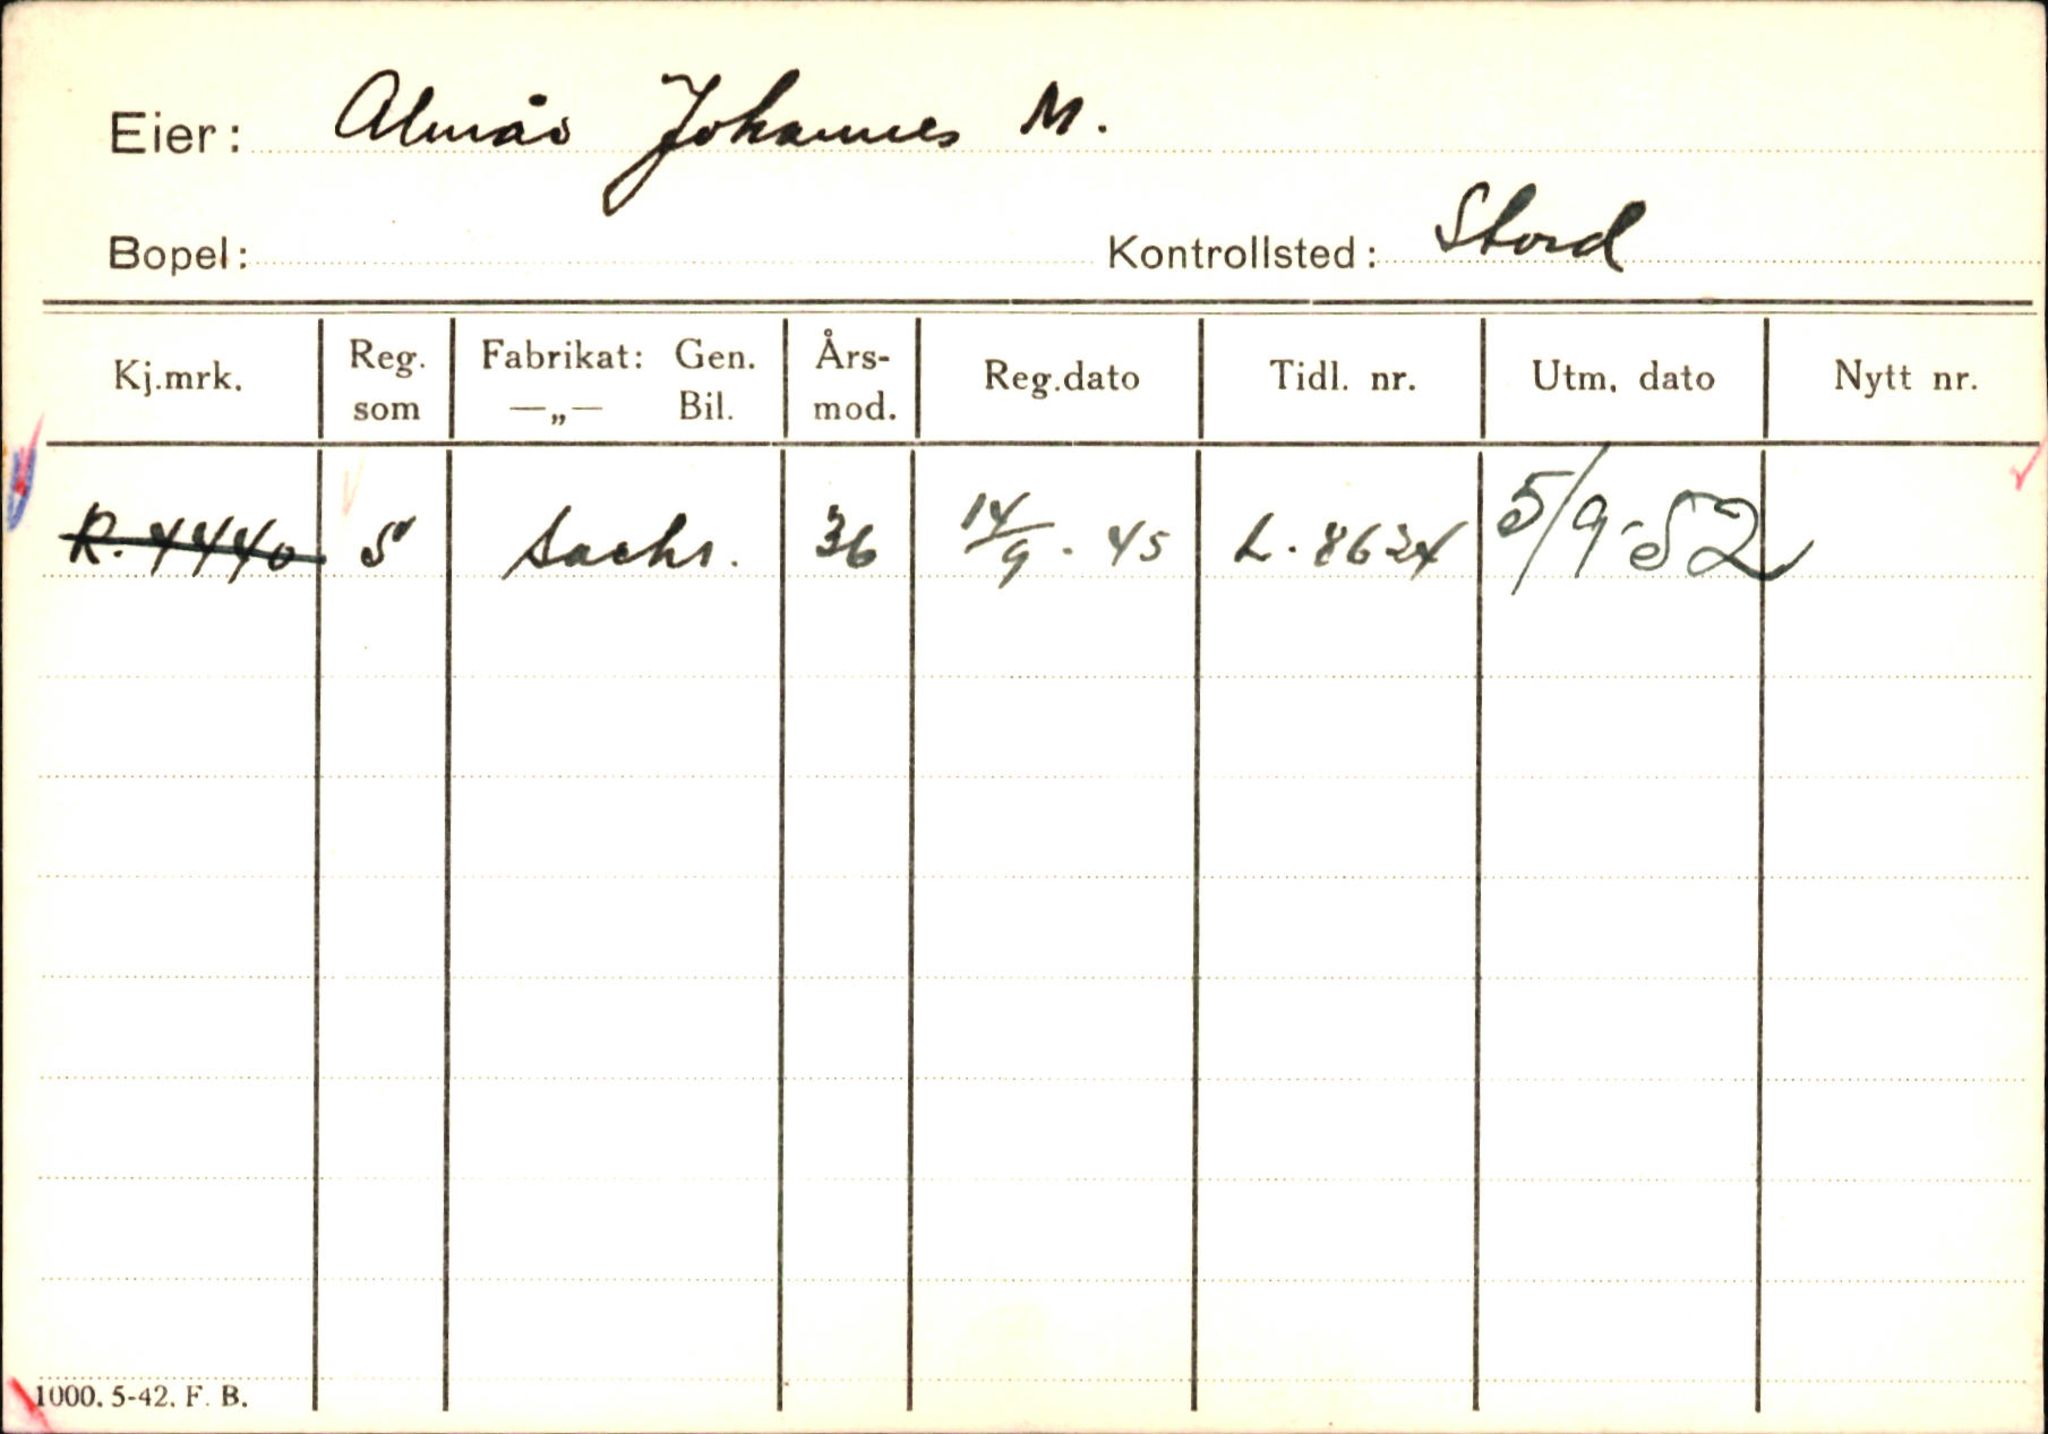 Eier: Almås Johannes M.
Bopel: Kontrollsted: Stord
Kj.mrk. Reg. som Fabrikat: Gen. —„— Bil. Års- mod. Reg.dato Tidl. nr. Utm. dato Nytt nr.
R. 4440 S Sachs. 36 14/9. 45 L. 8624 5/9-52
1000. 5-42. F. B.